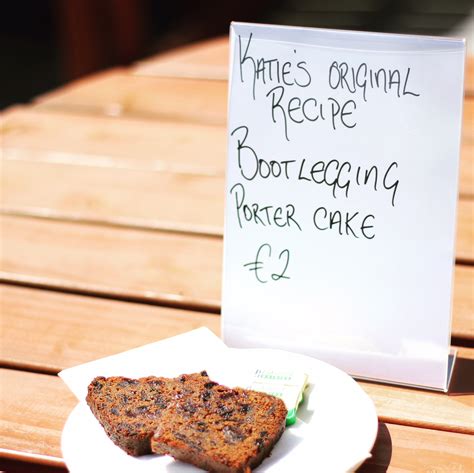 KATIE'S ORIGINAL
RECIPE
BOOTLEGGING
PORTER CAKE
€2